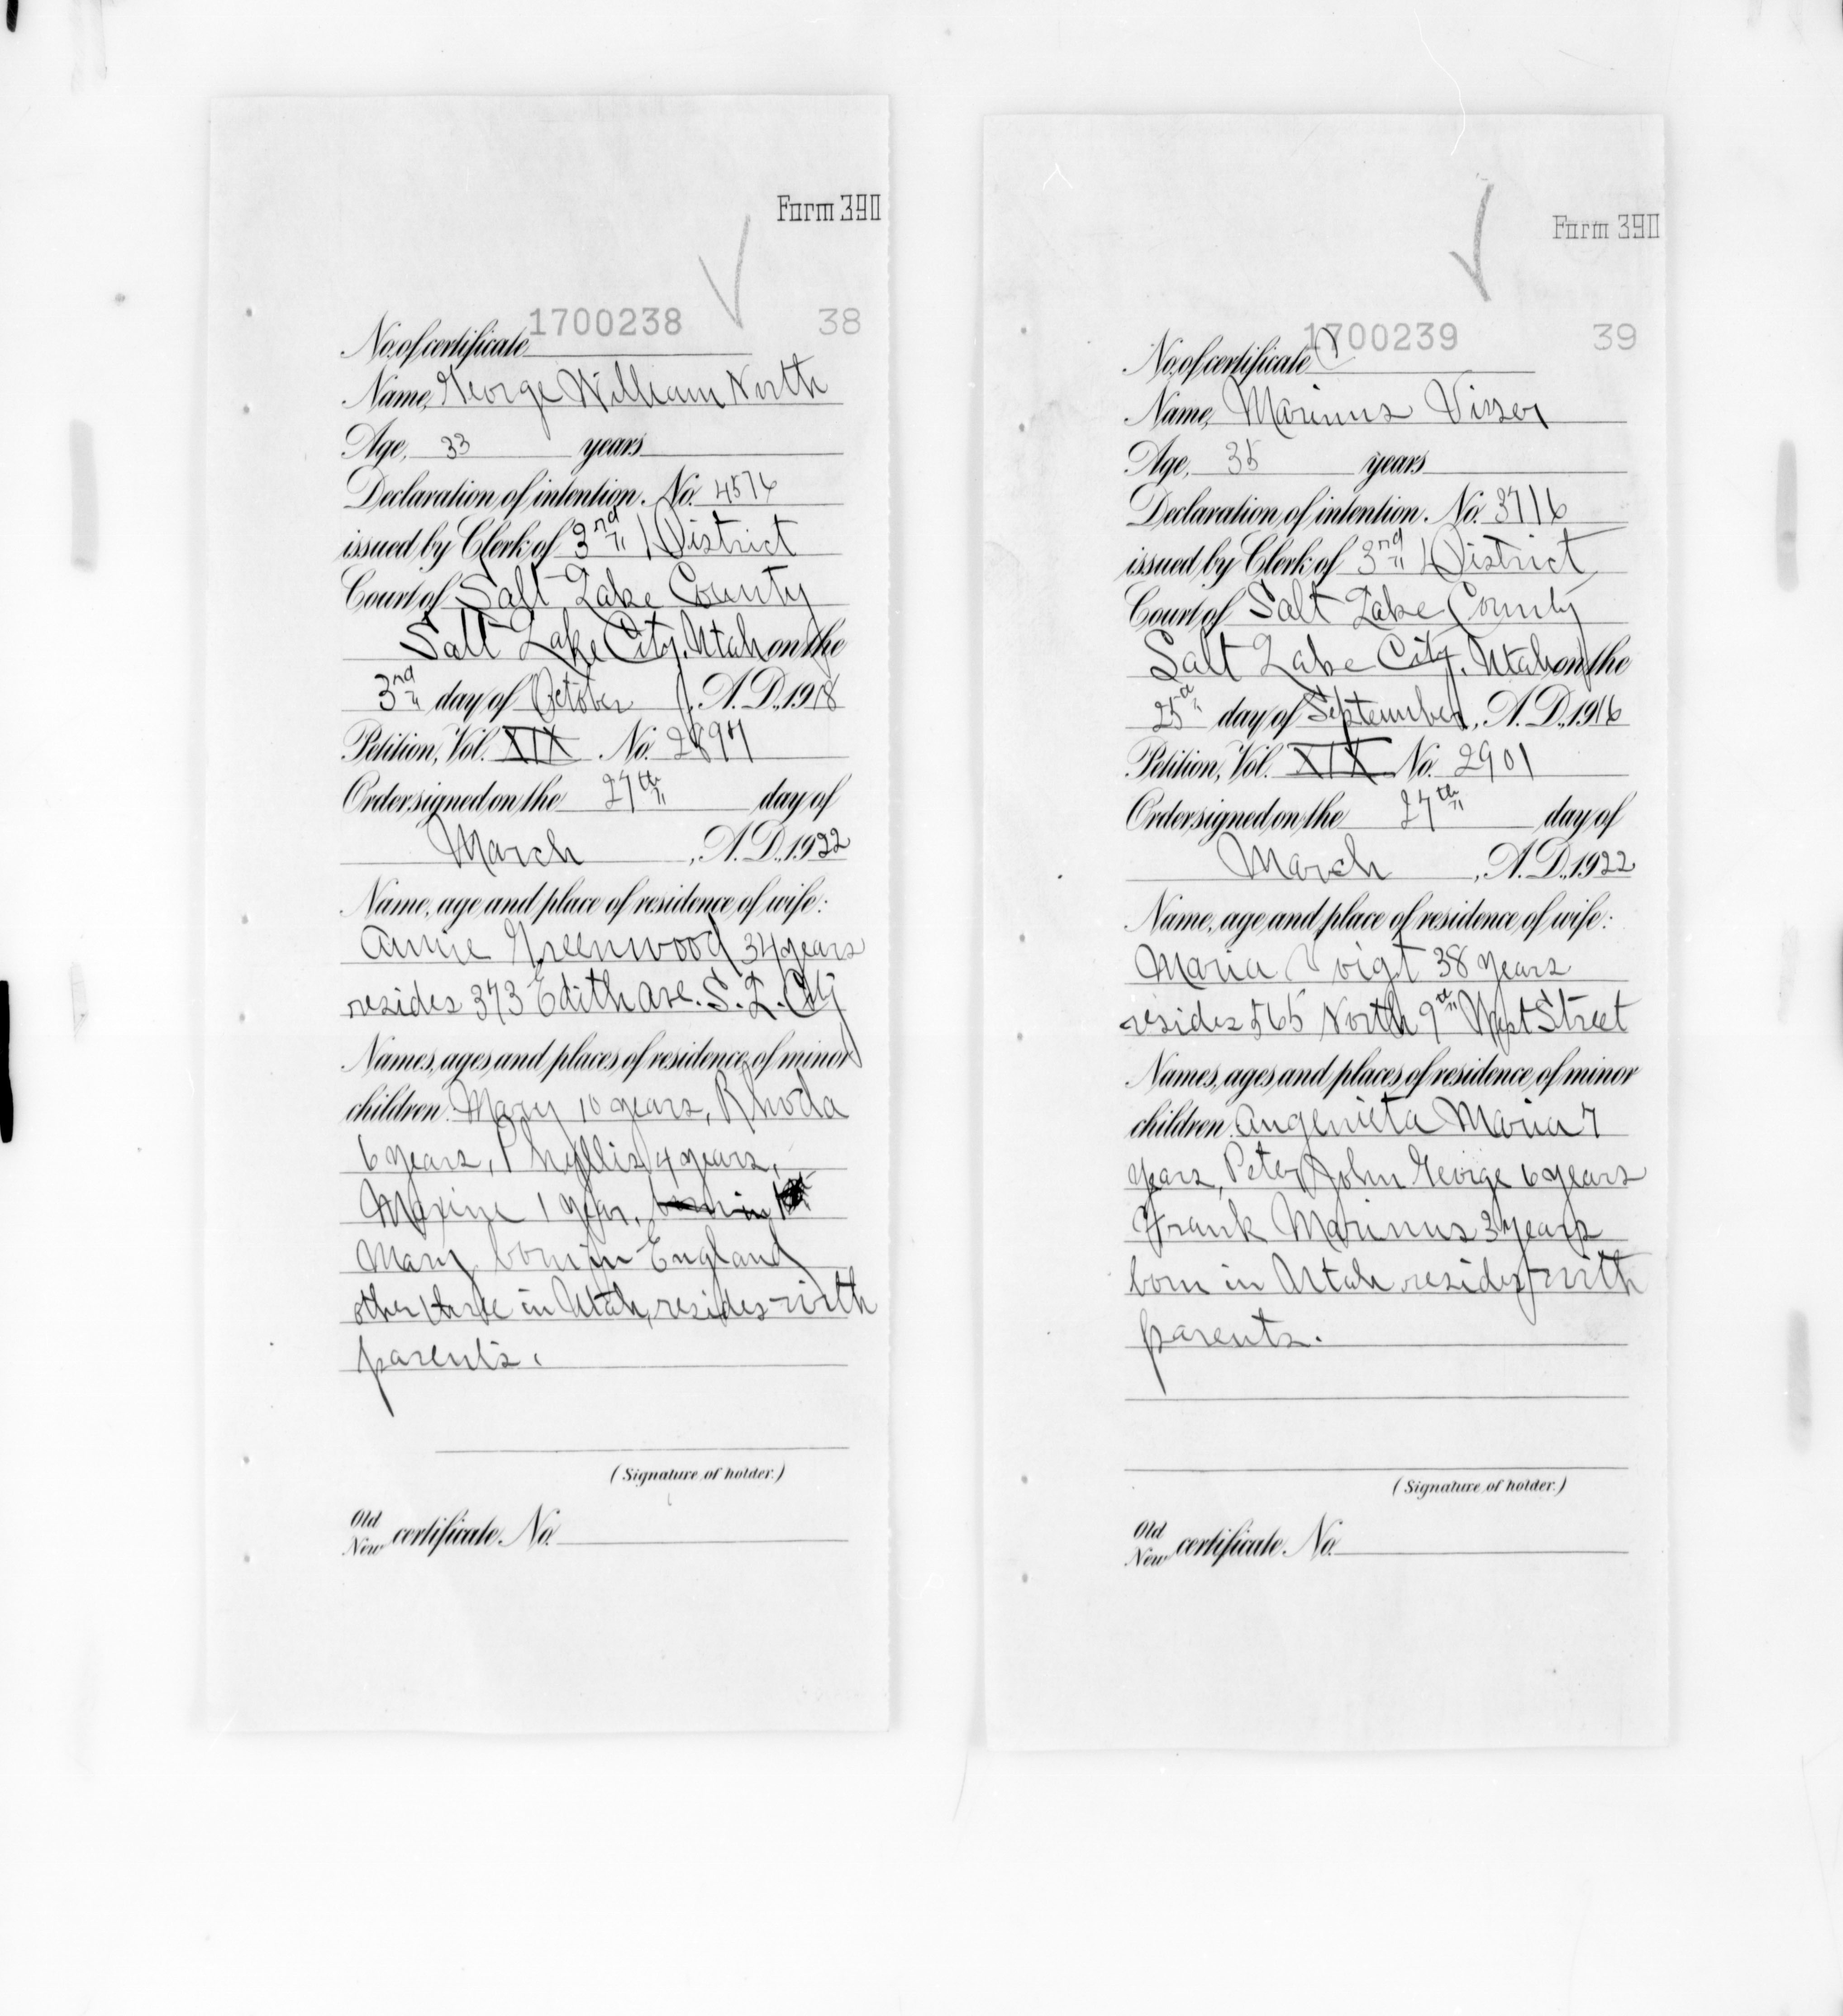 Form 390
1700238 38
No. of certificate
Name, George William North
Age, 33 years
Declaration of intention. No. 4576
issued by Clerk of 3rd District
Court of Salt Lake County
Salt Lake City, Utah on the
3rd day of October, A.D., 1918
Petition, Vol. XIX No. 2897
Order signed on the 27th day of
March, A.D., 1922
Name, age and place of residence of wife:
Annie Greenwood 34 years
resides 373 Edith Ave. S. L. City
Names, ages, and places of residence, of minor
children. Mary 10 years, Rhoda
6 years, Phyllis 4 years,
Maxine 1 year,
Mary born in England
other three in Utah, resides with
parents.
(Signature of holder.)
Old
New certificate No.
Form 390
1700239 39
No. of certificate
Name, Marinus Visser
Age, 35 years
Declaration of intention. No. 3716
issued by Clerk of 3rd District
Court of Salt Lake County
Salt Lake City, Utah on the
25th day of September, A.D., 1916
Petition, Vol. XIX No. 2901
Order signed on the 27th day of
March, A.D., 1922
Name, age and place of residence of wife:
Maria Voigt 38 years
resides 565 North 9th West Street
Names, ages, and places of residence, of minor
children. Angenieta Maria 7
years, Peter John George 6 years
Frank Marinus 3 years
born in Utah resides with
parents.
(Signature of holder.)
Old
New certificate No.